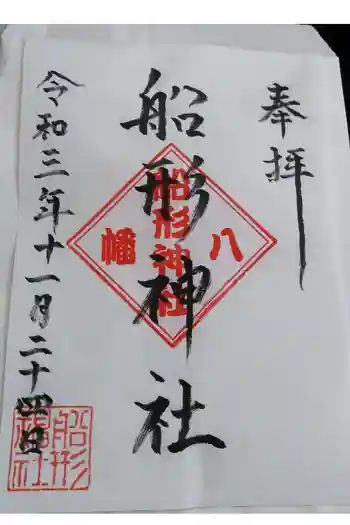 奉拝
船形神社
八幡
船形神社
令和三年十一月二十四日
船形神社